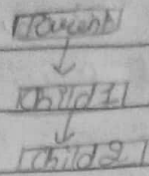 Parent
Child1
Child2